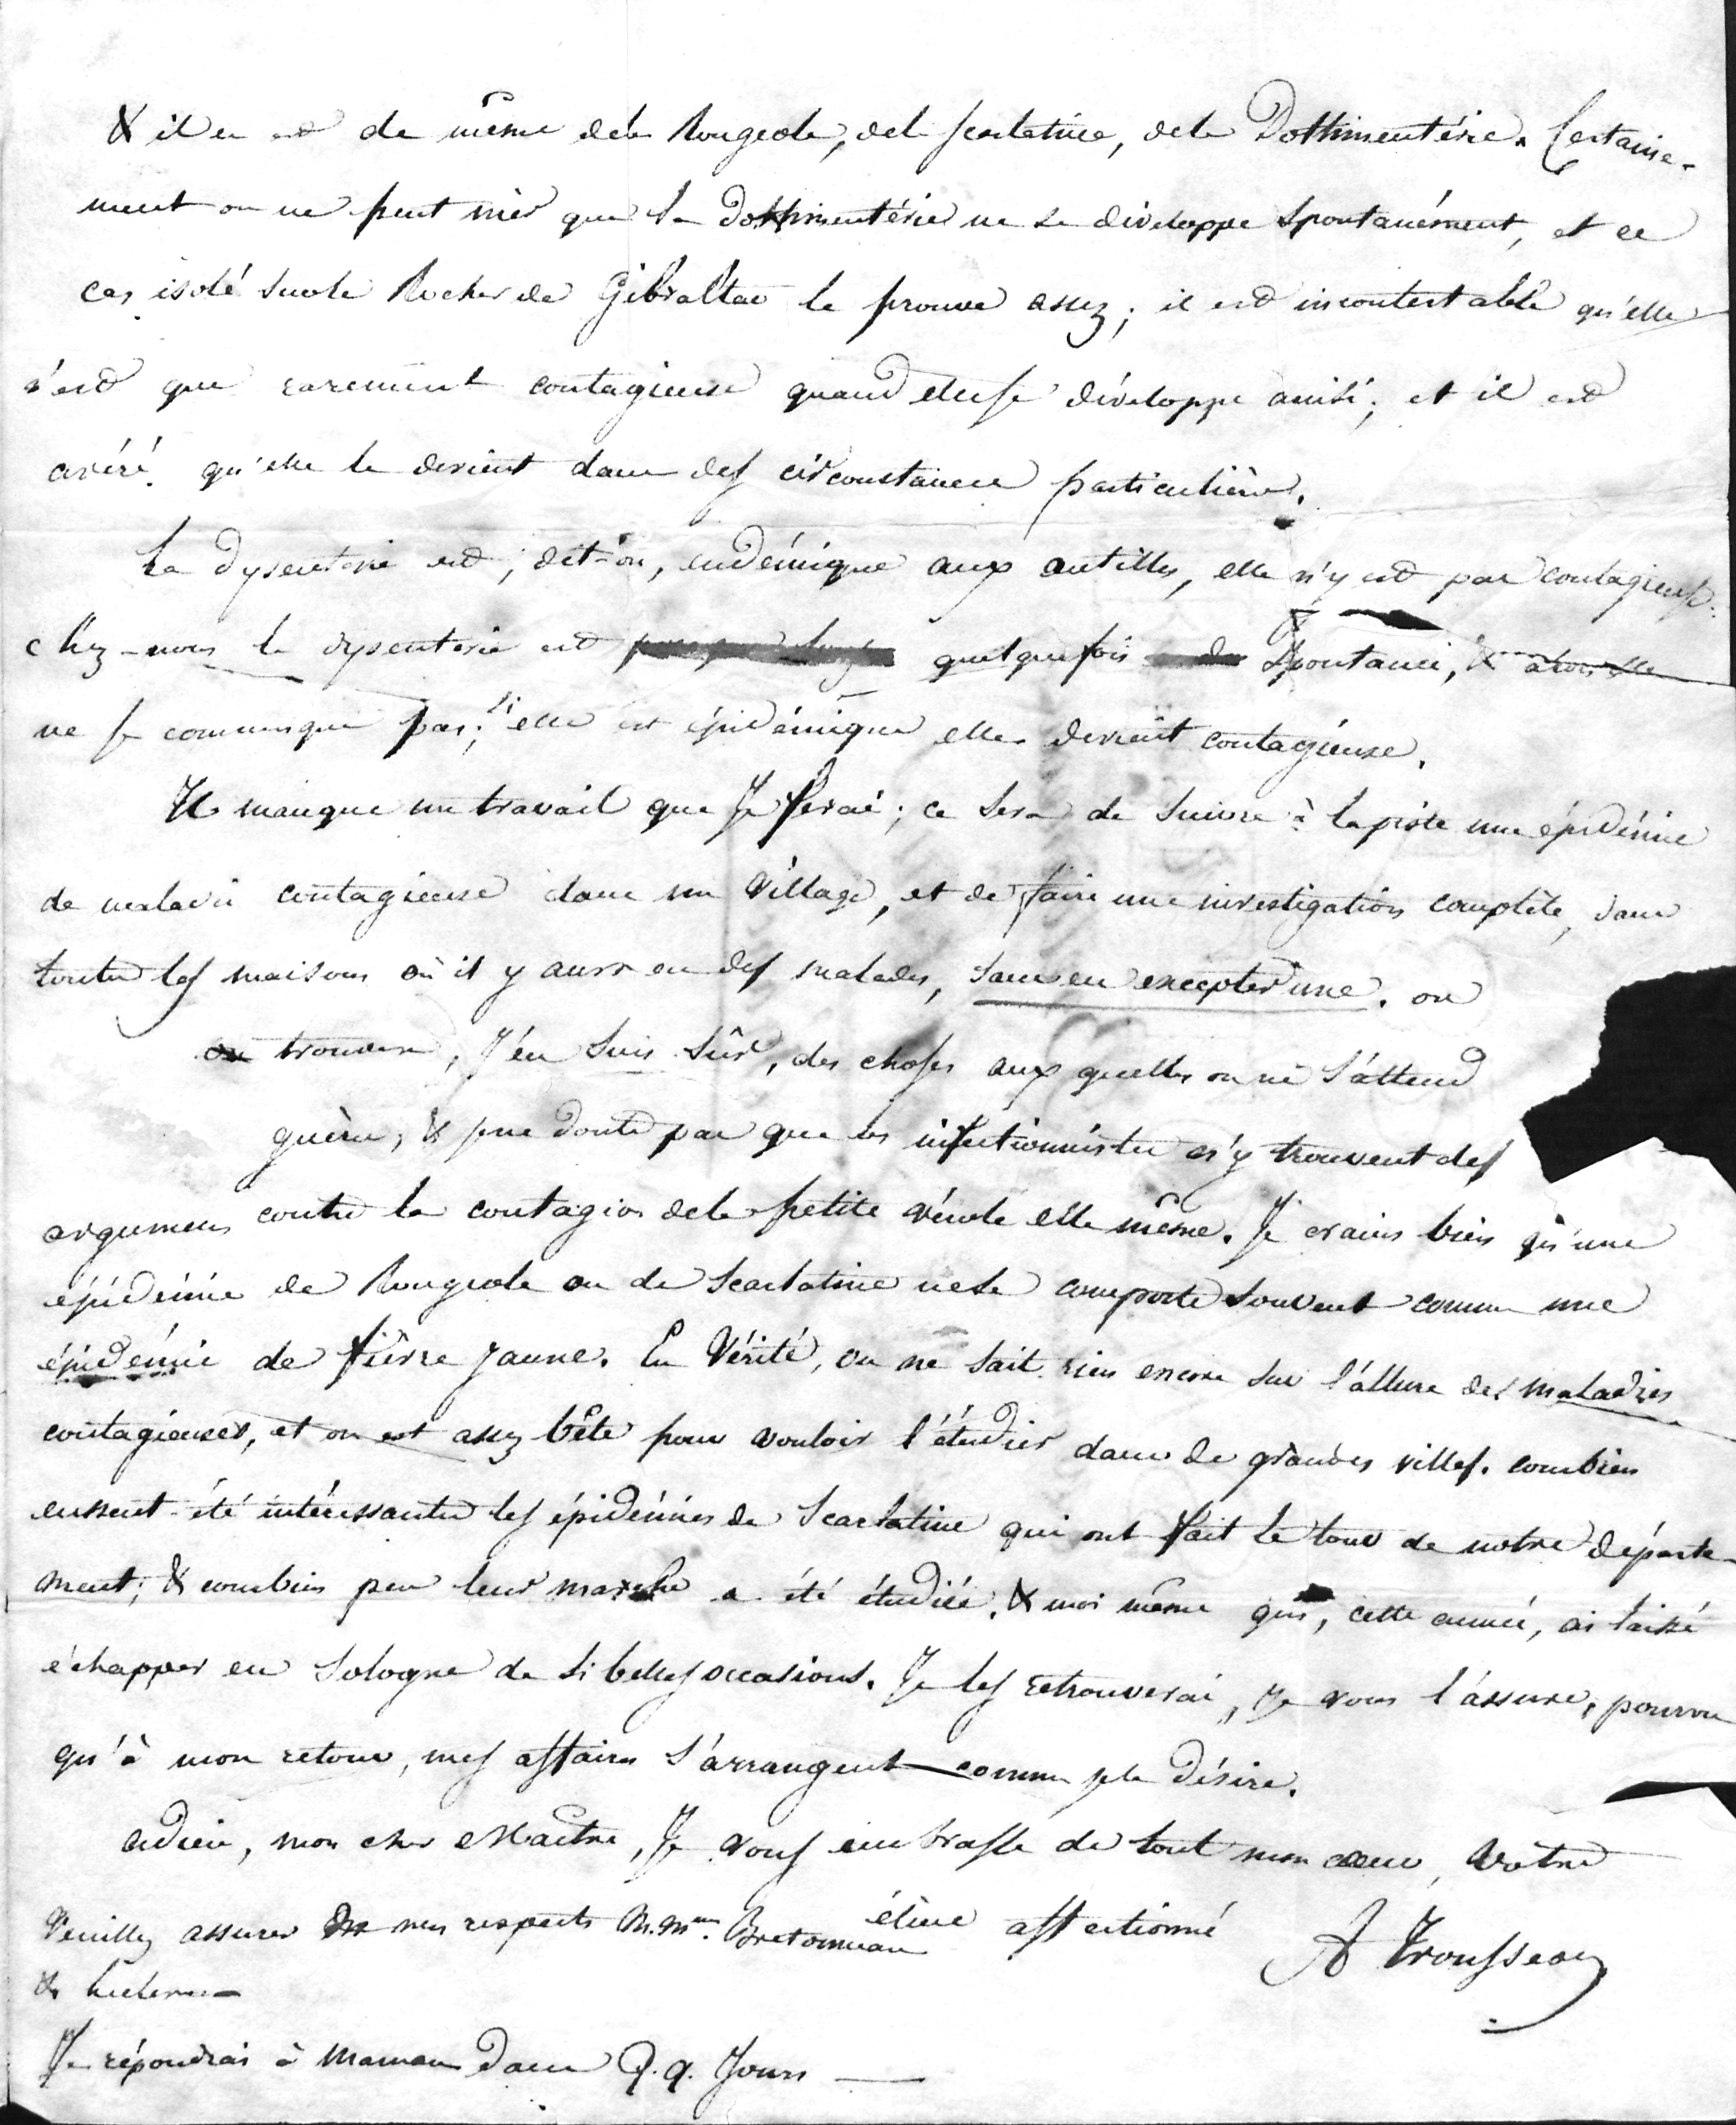 & il en est de même de la Rougeole, de la scarlatine, de la Dothinentérie. Certaine-
ment on ne peut nier que la dothinentérie ne se développe spontanément, et ce
cas isolé sur le Rocher de Gibraltar le prouve assez; il est incontestable qu'elle
n'est que rarement contagieuse quand elle se développe ainsi; et il est
avéré qu'elle le devient dans des circonstances particulières.
La dysenterie est, dit-on, endémique aux antilles, elle n'y est pas contagieuse.
chez-nous la dysenterie est quelquefois spontanée, & alors elle
ne se communique pas; si elle est épidémique elle devient contagieuse.
Il manque un travail que Je ferai; ce sera de suivre à la piste une épidémie
de maladie contagieuse dans un village, et de faire une investigation complète, dans
toutes les maisons où il y aura eu des malades, sans en excepter une. on
on trouvera, J'en suis sûr, des choses aux quelles on ne s'attend
guère, & je ne doute pas que les infectionnistes n'y trouvent des
argumens contre la contagion de la petite vérole elle même. Je crains bien qu'une
épidémie de Rougeole ou de scarlatine ne se comporte souvent comme une
épidémie de fièvre jaune. En Vérité, on ne sait rien encore sur l'allure des maladies
contagieuses, et on est assez bête pour vouloir l'étudier dans de grandes villes. combien
eussent été intéressantes les épidémies de scarlatine qui ont fait le tour de notre départe-
ment; & combien peu leur marche a été étudiée. & moi même qui, cette année, ai laissé
échapper en Sologne de si belles occasions. Je les retrouverai, Je vous l'assure, pourvu
qu'à mon retour, mes affaires s'arrangent comme je le désire.
adieu, mon cher Maître, Je vous embrasse de tout mon cœur, Votre
élève affectionné
A Trousseau
Veuillez assurer de mes respects M.Mme. Bretonneau
&
Je répondrai à Maman dans Q.q. Jours —